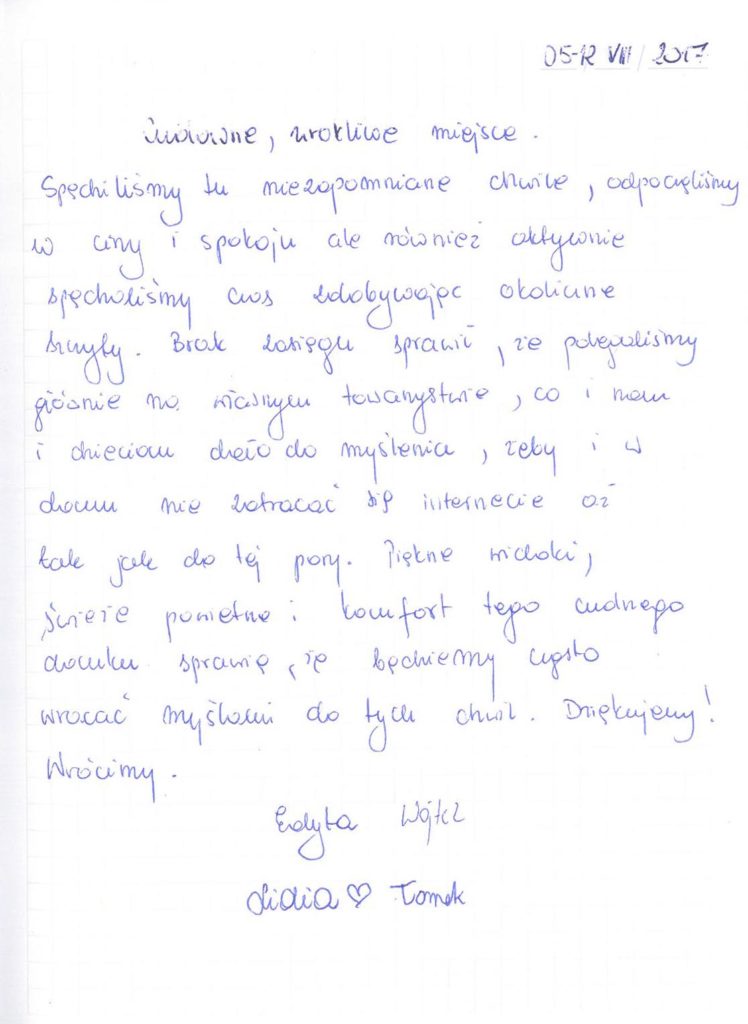 05-12 VIII / 2017
Cudowne, urokliwe miejsce.
Spędziliśmy tu niezapomniane chwile, odpoczęliśmy
w ciszy i spokoju ale również aktywnie
spędzaliśmy czas zdobywając okoliczne
szczyty. Brak zasięgu sprawił, że polegaliśmy
głównie na własnym towarzystwie, co i nam
i dzieciom dało do myślenia, żeby i w
domu nie zatracać się internecie aż
tak jak do tej pory. Piękne widoki,
świeże powietrze i komfort tego cudnego
domku sprawią, że będziemy często
wracać myślami do tych chwil. Dziękujemy!
Wrócimy.
Edyta Wójtek
Lidia ♡ Tomek